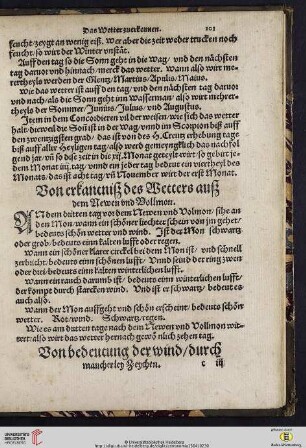 Das Wetter zuerkennen. 101
feucht/zeygt an wenig eiß. Wer aber die zeit weder trucken noch
feucht/so wirt der Winter vnstät.
Auff den tag so die Sonn geht in die Wag/vnd den nächsten
tag daruor vnd hinnach/merck das wetter. Wann also wirt me-
rertheyls werden der Mertz/Martius/Aprilis/Maius.
Wie das wetter ist auff den tag/vnd den nächsten tag daruor
vnd nach/als die Sonn geht inn Wasserman/also wirt mehrer-
theyls der Sommer/Junius/Julius/vnd Augustus.
Item in dem Concordieren vil der weisen/wie sich das wetter
halt/dieweil die Soñ ist in der Wag/vnnd im Scorpion biß auff
den zwentzigsten grad/das ist von des H. Creutz erhebung tag/
biß auff aller Heyligen tag/also werd gemeyngklich das nachfol
gend jar/
Von erkantniß des Wetters auß
dem Newen vnd Vollmon.
AN dem dritten tag vor dem Newen vnd Volmon/sihe an
den Mon/wann ein schöner liechter schein von jm gehet/
bedeuts schön wetter vnd wind. Ist der Mon schwartz
oder grob/bedeuts einn kalten lufft oder regen.
Wann ein schöner klarer circkel bei dem Mon ist/vnd schnell
zerbricht/bedeuts einn schönen lufft. Vnnd seind der ring zwen
oder drei/bedeuts einn kalten winterlichen lufft.
Wann ein rauch darumb ist/bedeuts einn winterlichen lufft/
der kompt durch starcken wind. Vnd ist er schwartz/bedeut es
auch also.
Wann der Mon auffgeht vnd schön erscheint/bedeuts schön
wetter. Rot/wind. Schwartz/regen.
Wie es am dritten tage nach dem Newen vnd Vollmon wit-
tert/also wirt das wetter hernach gewönlich zehen tag.
Von bedeutung der wind/durch
mancherley Zeychen.
c iij